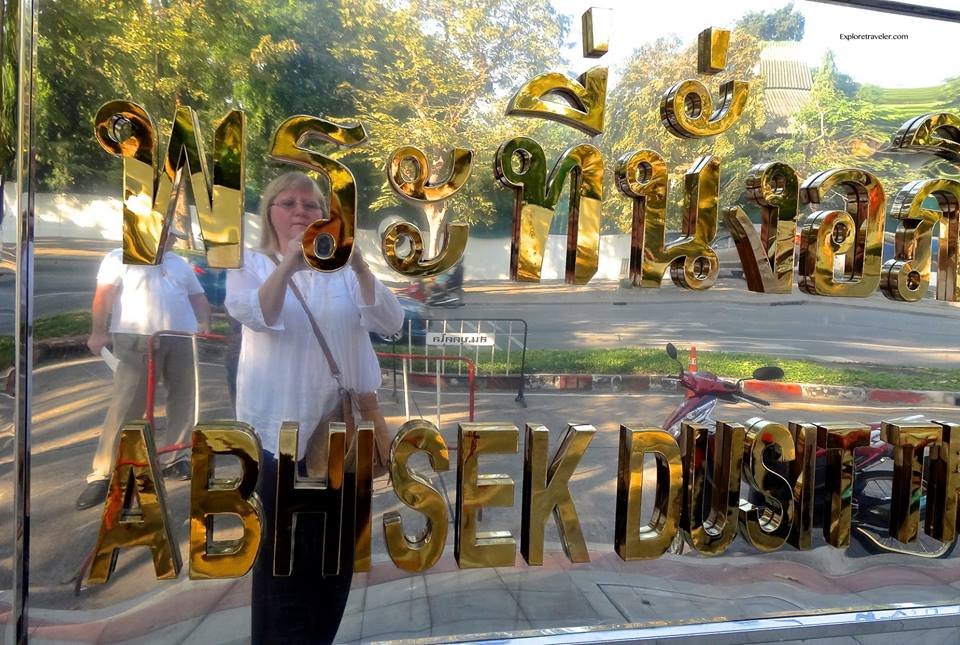 Exploretraveler.com
พระที่นั่งอภิ
ABHISEK DUSIT TH